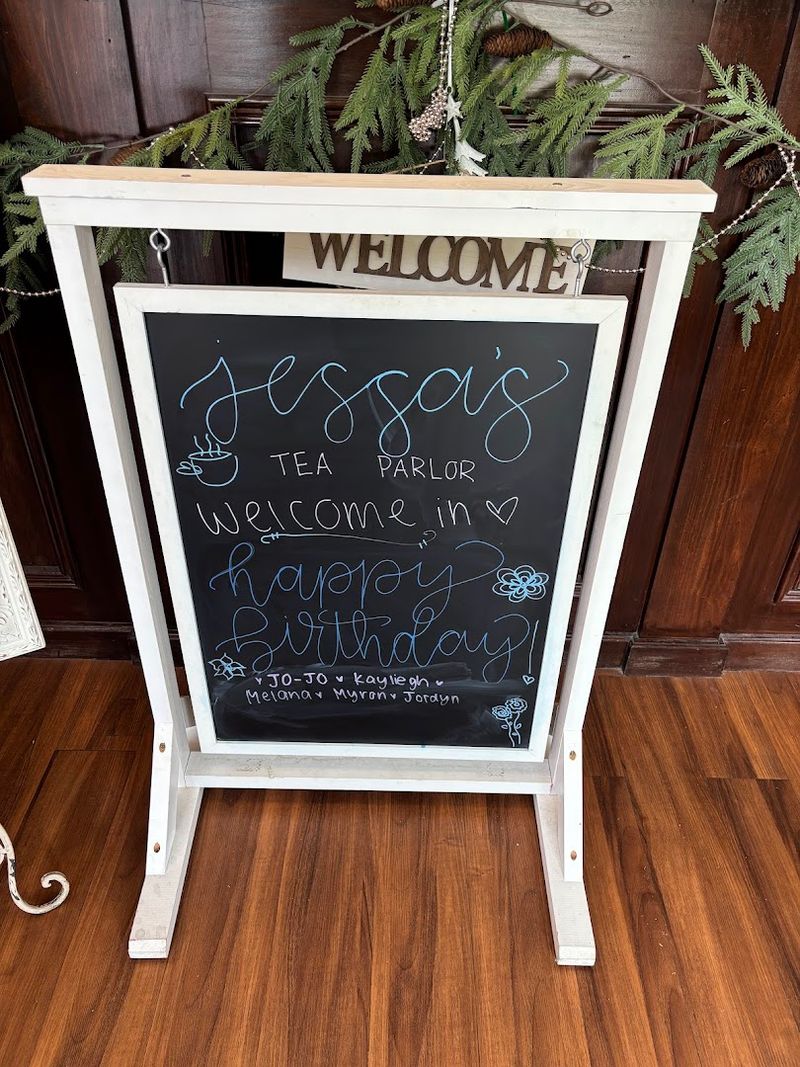 WELCOME
jessa's
TEA PARLOR
Welcome in ♡
happy
Birthday!
♥ JO-JO ♥ Kayliegh ♥
Melana ♥ Myron ♥ Jordyn